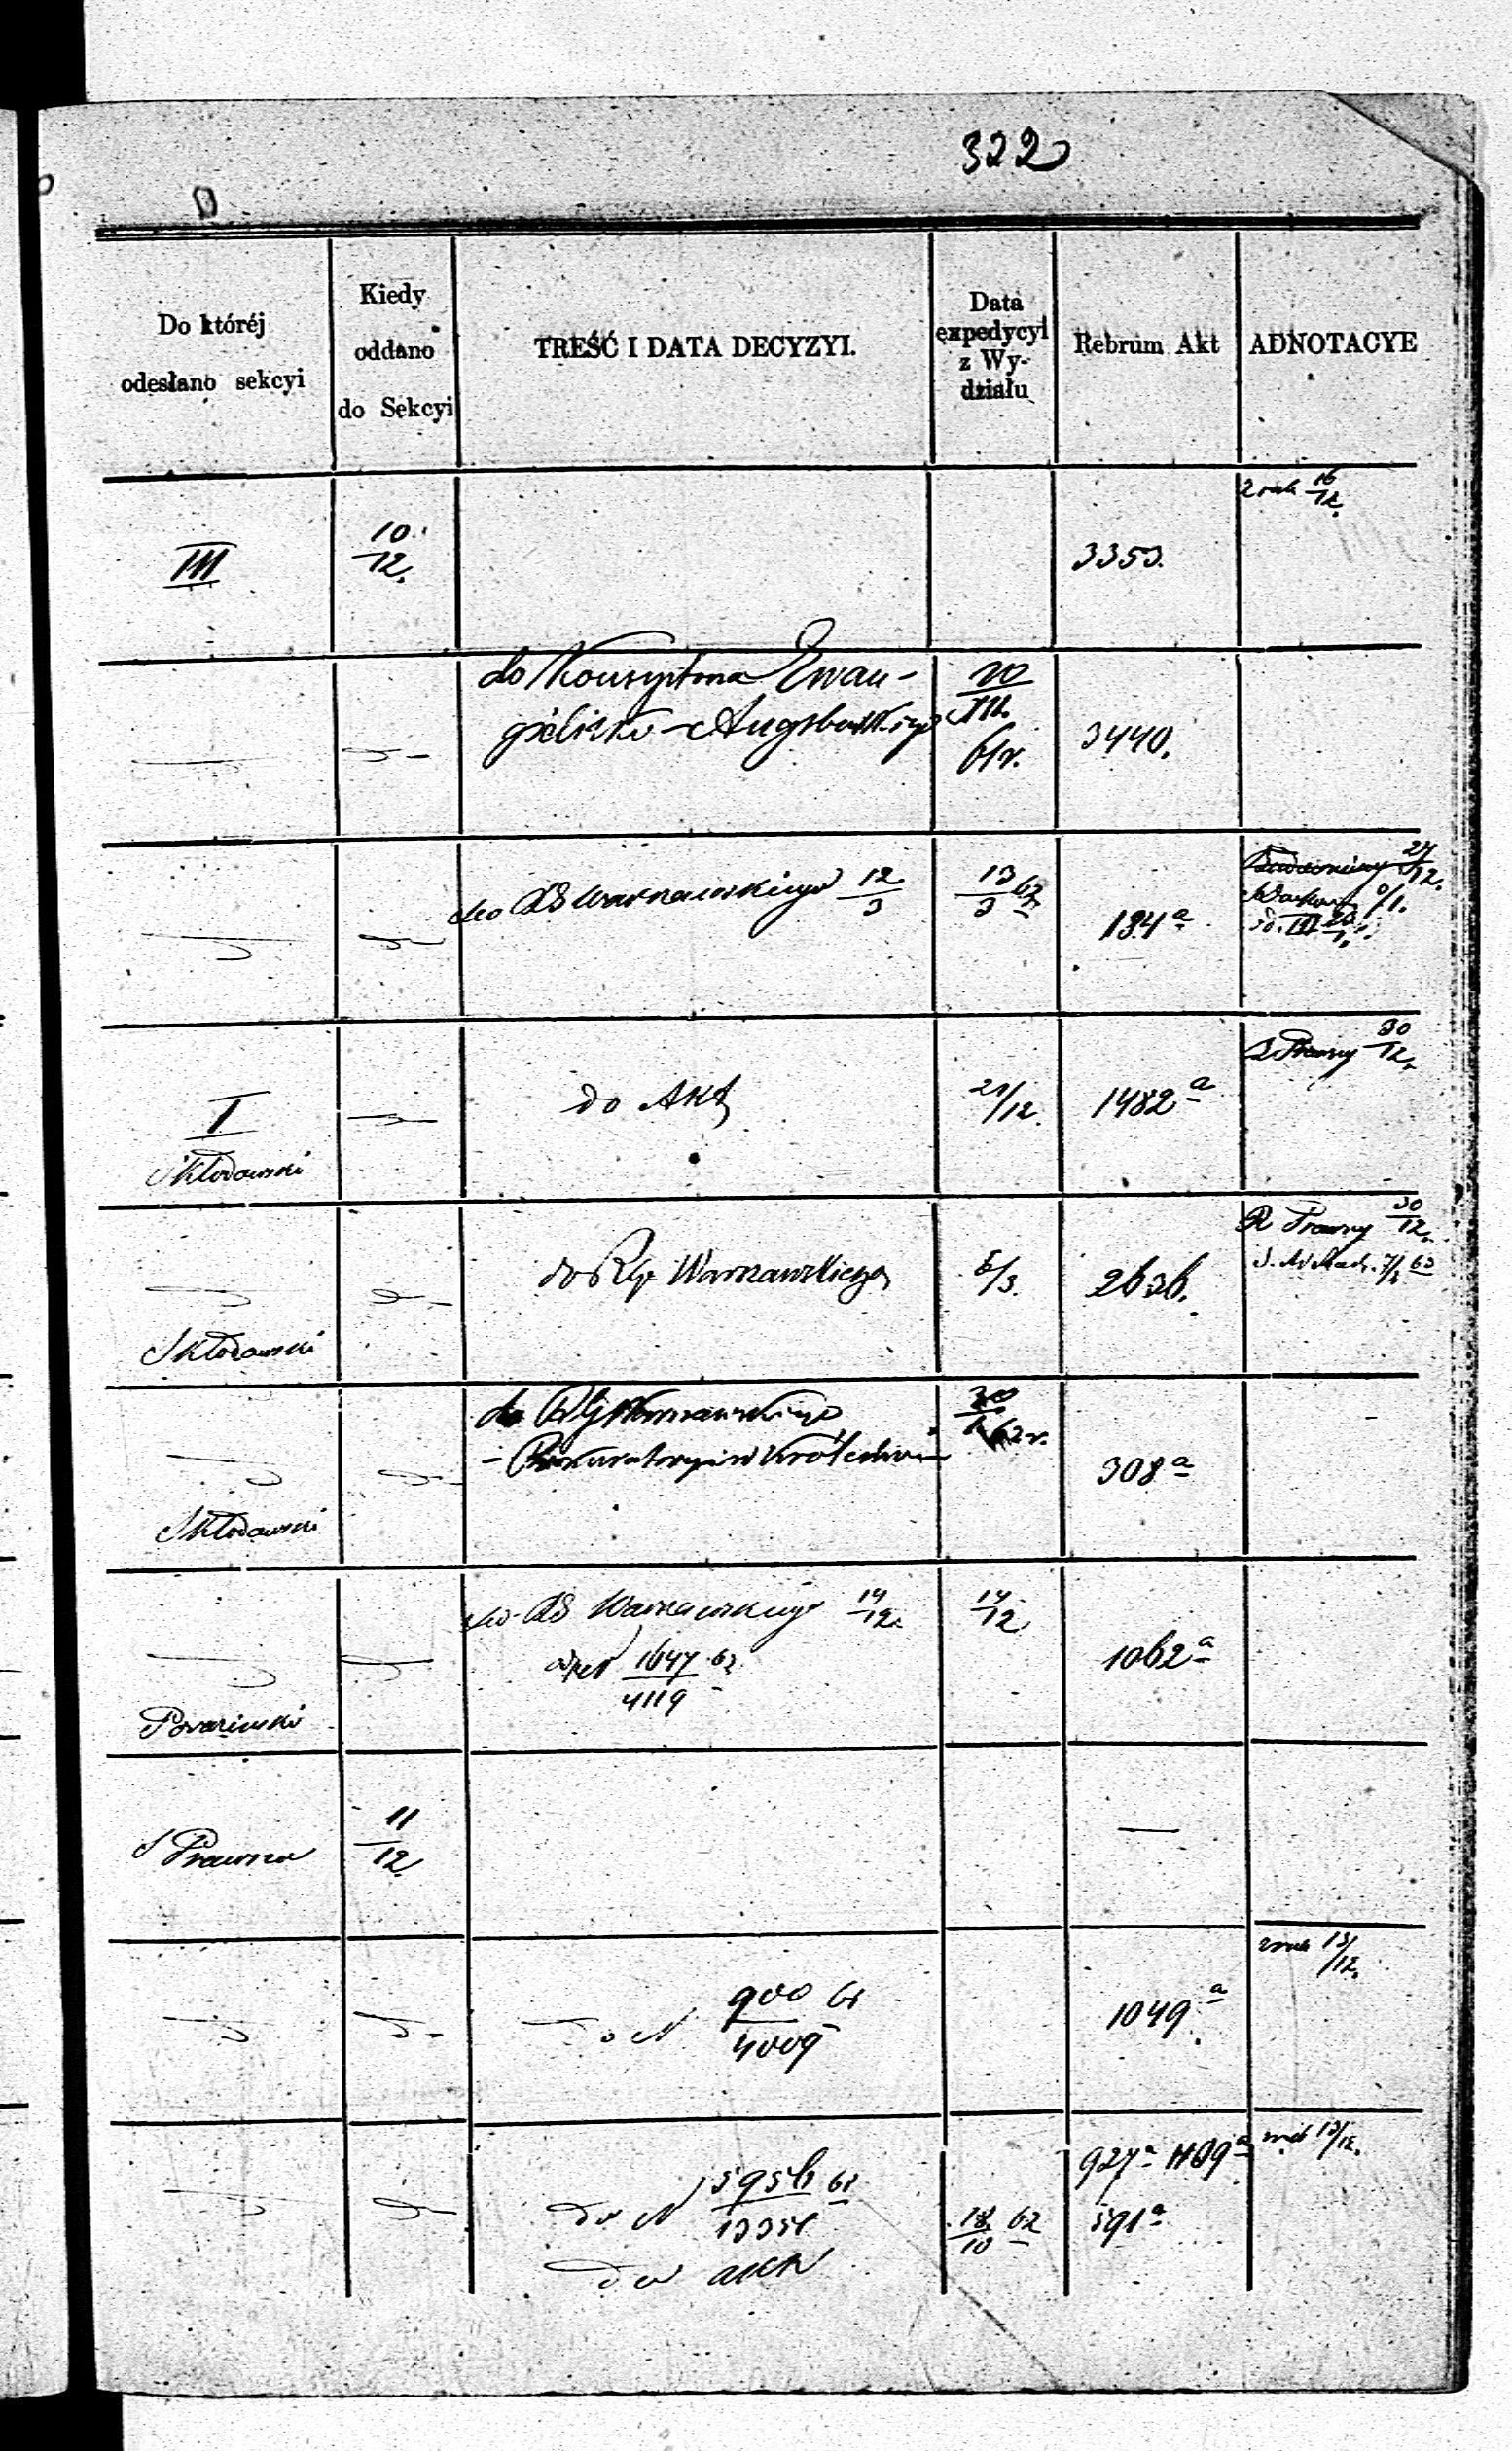 322
Do któréj
odesłano sekcyi
Kiedy
oddano
do Sekcyi
TREŚĆ I DATA DECYZYI.
Data
expedycyi
z Wy-
działu
Rebrum Akt
ADNOTACYE
III
10/12.
3353.
16/12.
do Konsystorza Ewan-
gielicko-Augsburskiego
20/XII.
61r.
3440.
do RG Warszawskiego 12/3
13/3 62
184a
27/12.
I
Skłodowski
do Akt
21/12.
1482a
30/12.
Skłodowski
do RGo Warszawskiego
5/3.
2636.
30/12.
Skłodowski
do RG Warszawskiego
- Prokuratoryi w Królestwie
30/1 62r.
308a
do RG Warszawskiego 14/12.
1647/4119 62
14/12
1062a
S Prawna
11/12
—
do N 900/4009 61
1049a
13/12.
do N 5956/13351 61
do akt
18/10 62
927a 1109a
591a
13/12.